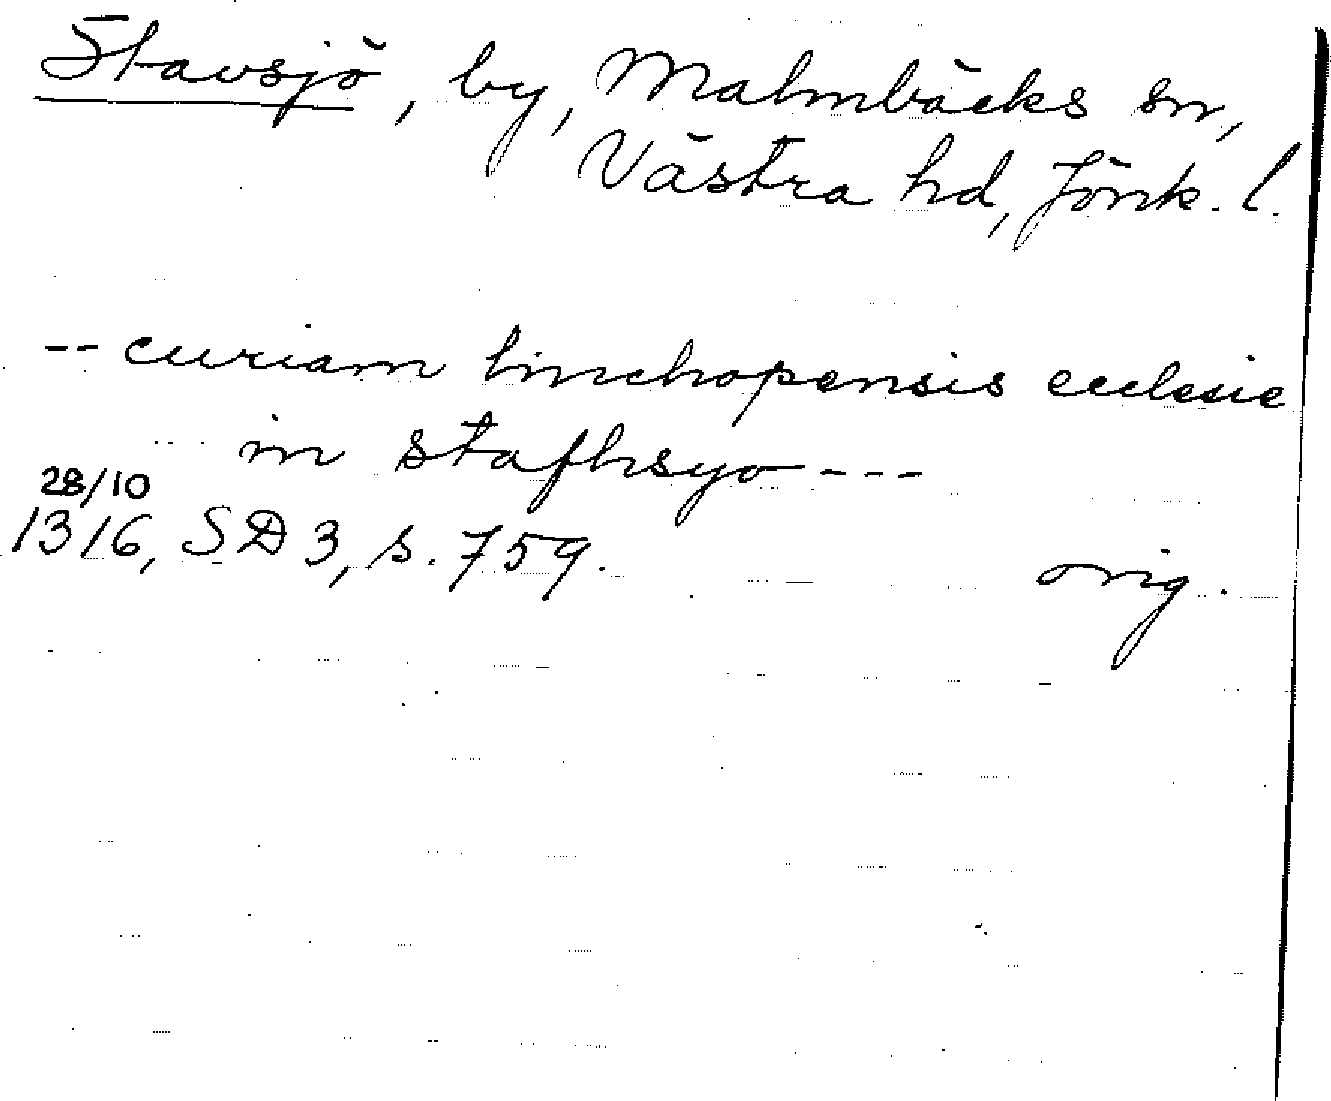 Stavsjö, by, Malmbäcks sn,
Västra hd, Jönk. l.
-- curiam linchopensis ecclesie
in stafhsyo ---
28/10
1316, SD 3, s. 759.
orig.